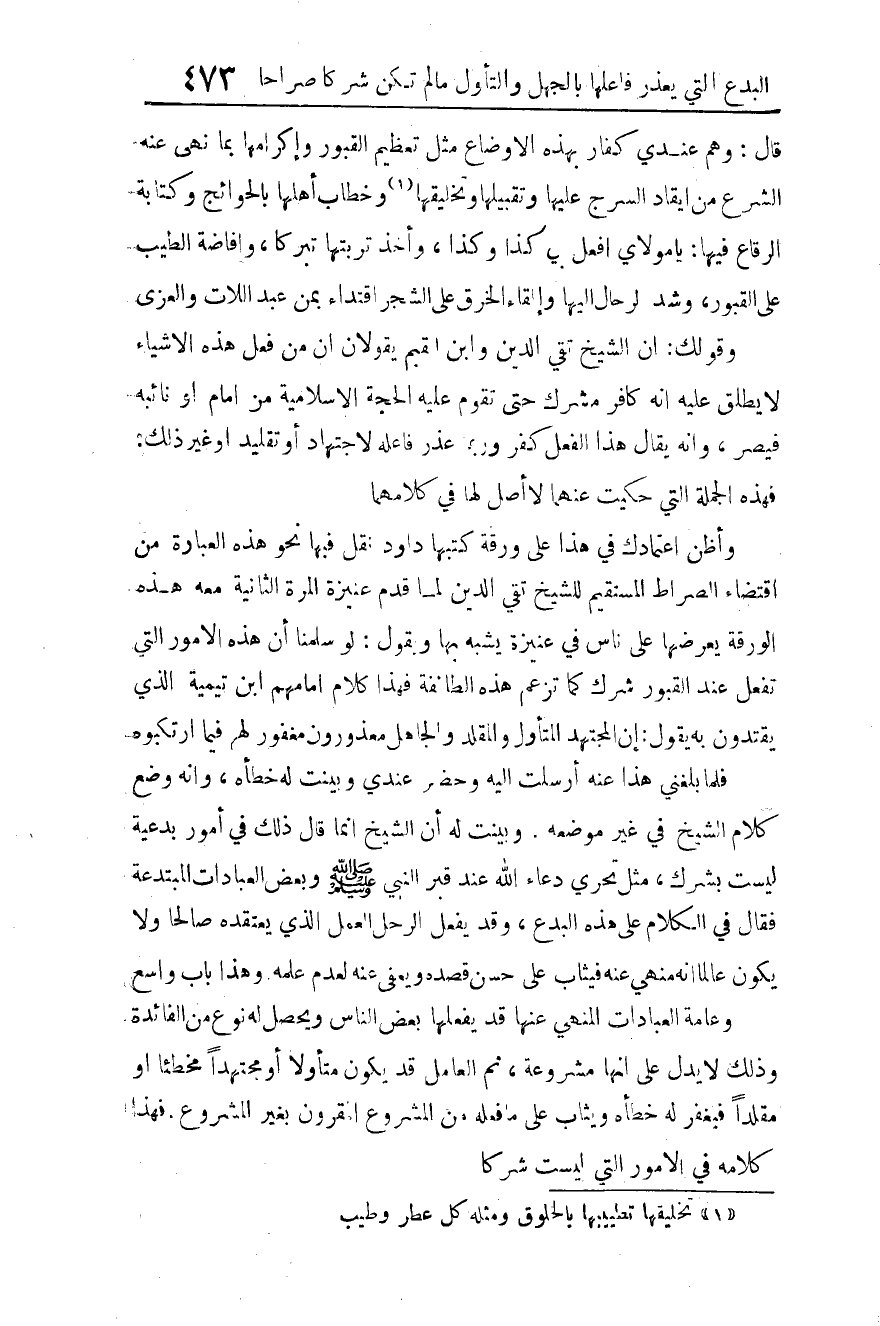 البدع التي يعذر فاعلها بالجهل والتأول مالم تكن شركا صراحا ٤٧٣
قال : وهم عندي كفار بهذه الاوضاع مثل تعظيم القبور وإكرامها بما نهى عنه
الشرع من ايقاد السرج عليها وتقبيلها وتخليقها (١) وخطاب أهلها بالحوائج وكتابة
الرقاع فيها : يامولاي افعل بي كذا وكذا ، وأخذ تربتها تبركا ، وإفاضة الطيب
على القبور، وشد لرحال اليها وإلقاء الخرق على الشجر اقتداء بمن عبد اللات والعزى
وقولك : ان الشيخ تقي الدين وابن القيم يقولان ان من فعل هذه الاشياء
لا يطلق عليه انه كافر مشرك حتى تقوم عليه الحجة الاسلامية من امام او نائبه
فيصر ، وانه يقال هذا الفعل كفر وربما عذر فاعله لاجتهاد أو تقليد اوغير ذلك :
فهذه الجملة التي حكيت عنهما لا أصل لها في كلامهما
وأظن اعتمادك في هذا على ورقة كتبها داود نقل فيها نحو هذه العبارة من
اقتضاء الصراط المستقيم للشيخ تقي الدين لما قدم عنيزة المرة الثانية معه هذه
الورقة يعرضها على ناس في عنيزة يشبه بها ويقول : لو سلمنا أن هذه الامور التي
تفعل عند القبور شرك كما تزعم هذه الطائفة فهذا كلام امامهم ابن تيمية الذي
يقتدون به يقول : إن المجتهد المتأول والمقلد والجاهل معذورون مغفور لهم فيما ارتكبوه
فلما بلغني هذا عنه أرسلت اليه وحضر عندي وبينت له خطأه ، وانه وضع
كلام الشيخ في غير موضعه . وبينت له أن الشيخ انما قال ذلك في أمور بدعية
ليست بشرك ، مثل تحري دعاء الله عند قبر النبي ﷺ وبعض العبادات المبتدعة
فقال في الكلام على هذه البدع ، وقد يفعل الرجل العمل الذي يعتقده صالحا ولا
يكون عالما انه منهي عنه فيثاب على حسن قصده ويعفى عنه لعدم علمه . وهذا باب واسع
وعامة العبادات المنهي عنها قد يفعلها بعض الناس ويحصل له نوع من الفائدة
وذلك لا يدل على انها مشروعة ، ثم العامل قد يكون متأولا أو مجتهداً مخطئا او
مقلداً فيغفر له خطأه ويثاب على ما فعله من المشروع المقرون بغير المشروع . فهذا
كلامه في الامور التي ليست شركا
«١» تخليقها تطييبها بالخلوق ومثله كل عطر وطيب